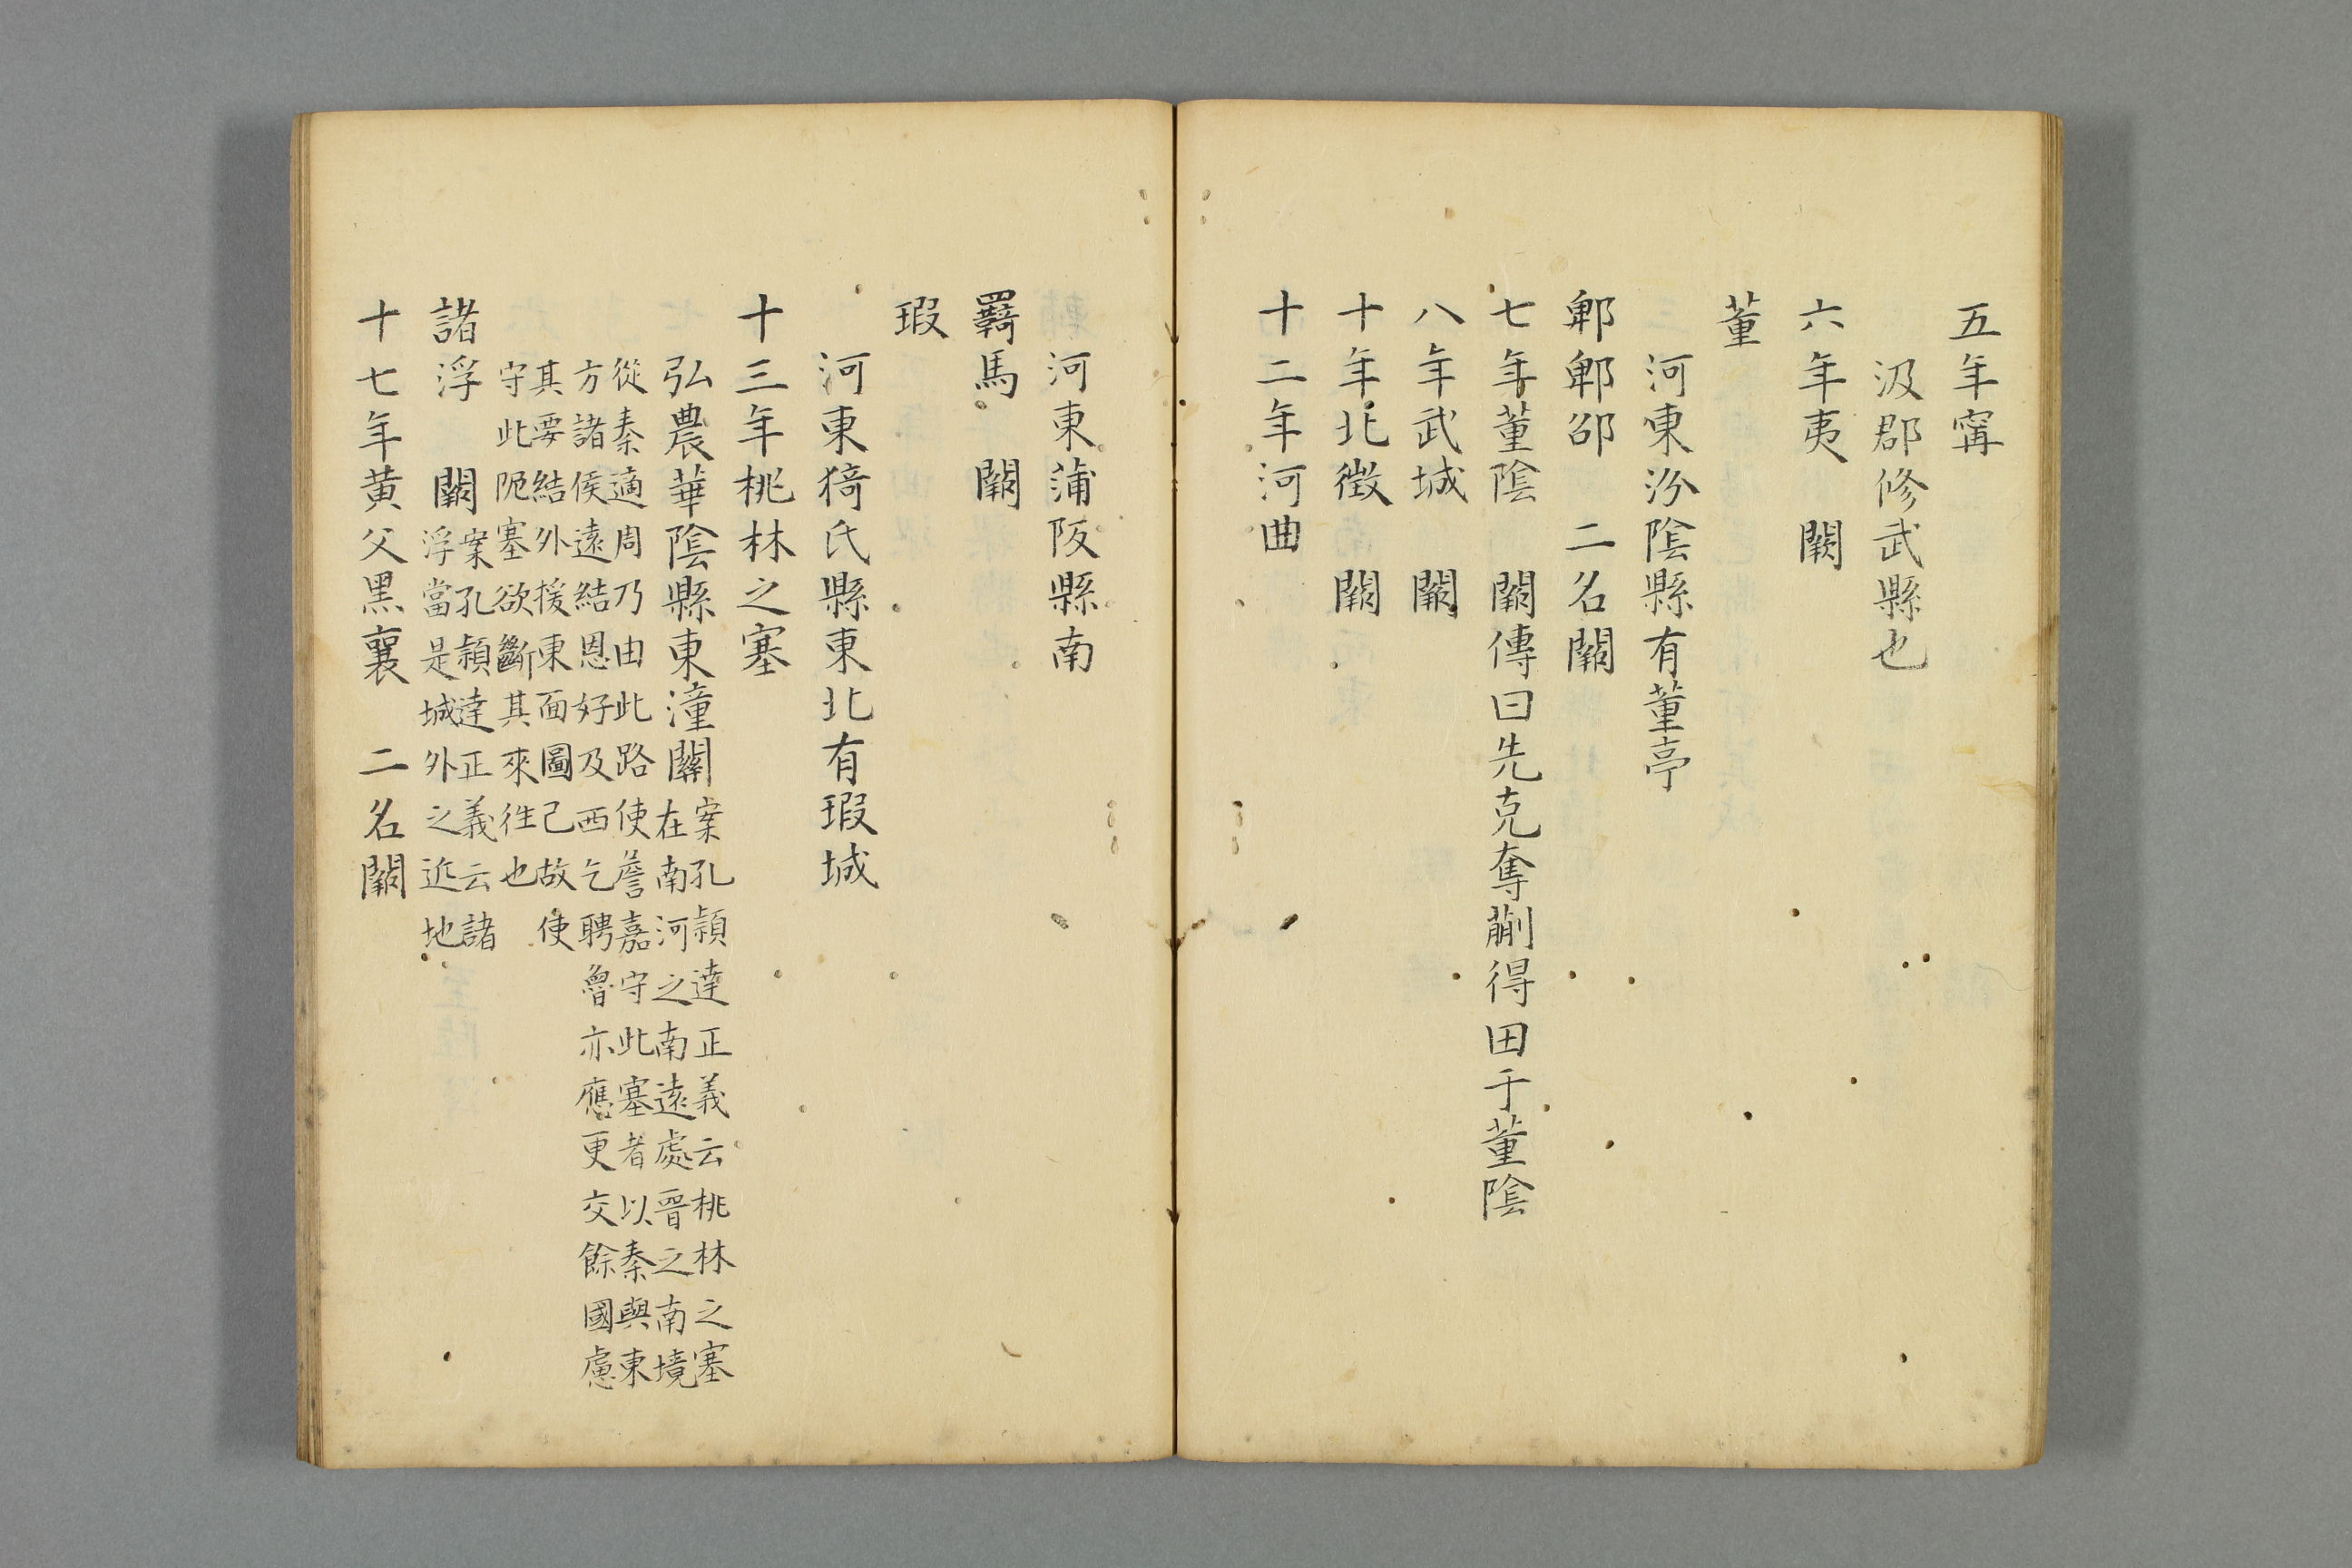 五年寗
汲郡修武縣也
六年夷　闕
董
河東汾陰縣有董亭
郫郫邵　二名闕
七年董陰　闕傳曰先克奪蒯得田于董陰
八年武城　闕
十年北徴　闕
十二年河曲
河東蒲阪縣南
羇馬　闕
瑕
河東猗氏縣東北有瑕城
十三年桃林之塞
弘農華陰縣東潼關
案孔頴達正義云桃林之塞
在南河之南遠處晉之南境
從秦適周乃由此路使詹嘉守此塞者以秦與東
方諸侯遠結恩好及西乞聘魯亦應更交餘國慮
其要結外援東面圖己故使
守此阨塞欲斷其來徃也
諸浮　闕
案孔頴達正義云諸
浮當是城外之近地
十七年黄父黒襄　二名闕